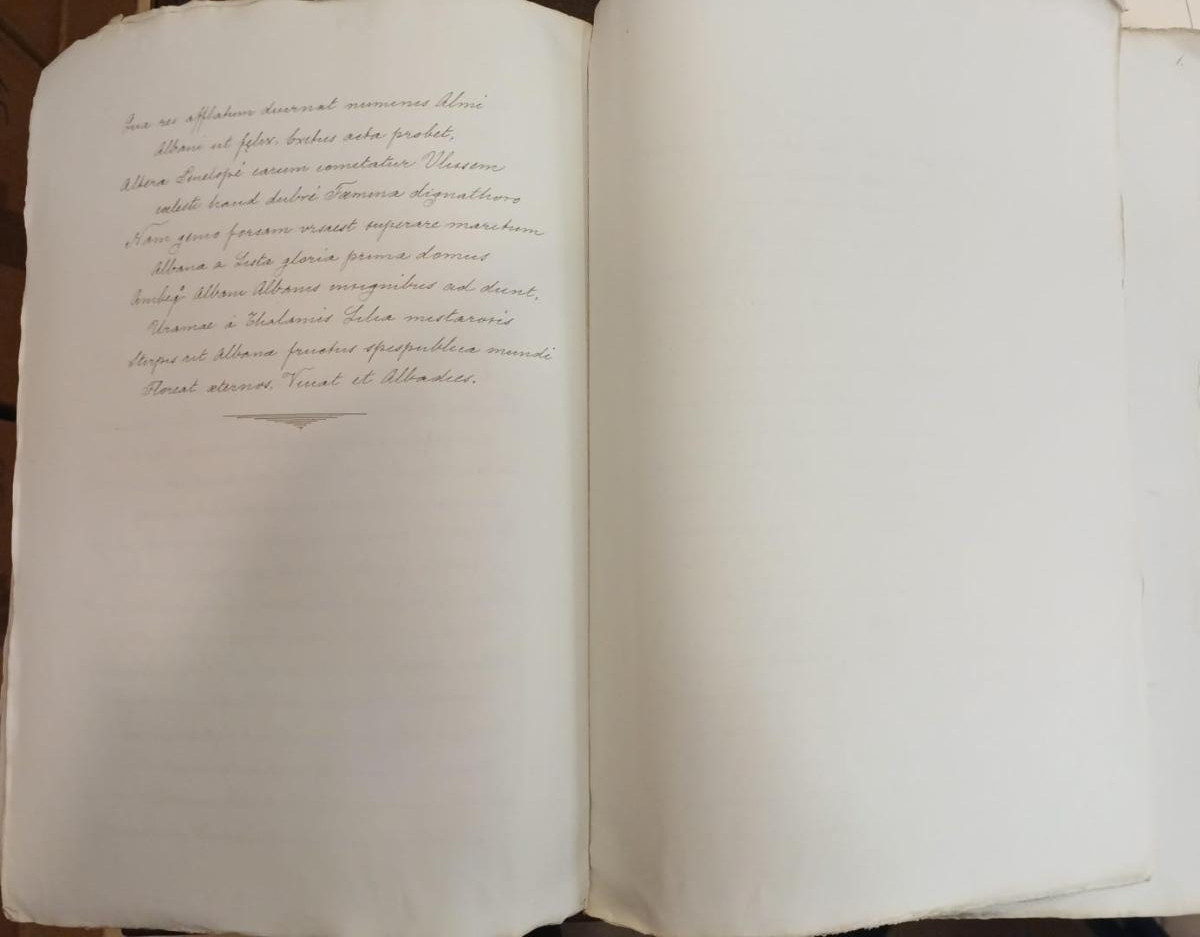 Qua res afflatum divernat numinis Almi
Albani ut fęlix. Exitus acta probet,
Altera Penelopé carum comitatur Vlissem
cælesti haud dubié Fæmina digna thoro
Nam gemo foream visaest superare maritum
Albana a Lista gloria prima domus
Ambeq̃ Albani Albanis insignibus ad dunt,
Uramae á Thalamis Lilia mista rosis
Stirpis ut Albana fructus spespublica mundi
Floreat æternos. Vivat et Alba dies.
1.